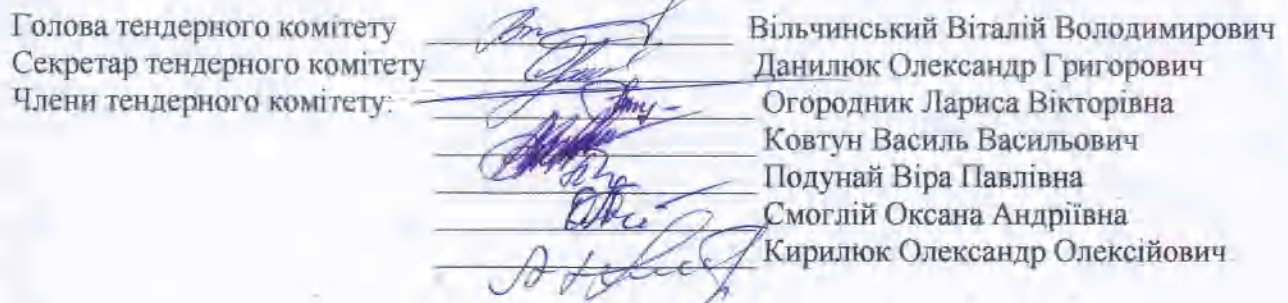 Голова тендерного комітету Вільчинський Віталій Володимирович
Секретар тендерного комітету Данилюк Олександр Григорович
Члени тендерного комітету: Огородник Лариса Вікторівна
Ковтун Василь Васильович
Подунай Віра Павлівна
Смоглій Оксана Андріївна
Кирилюк Олександр Олексійович